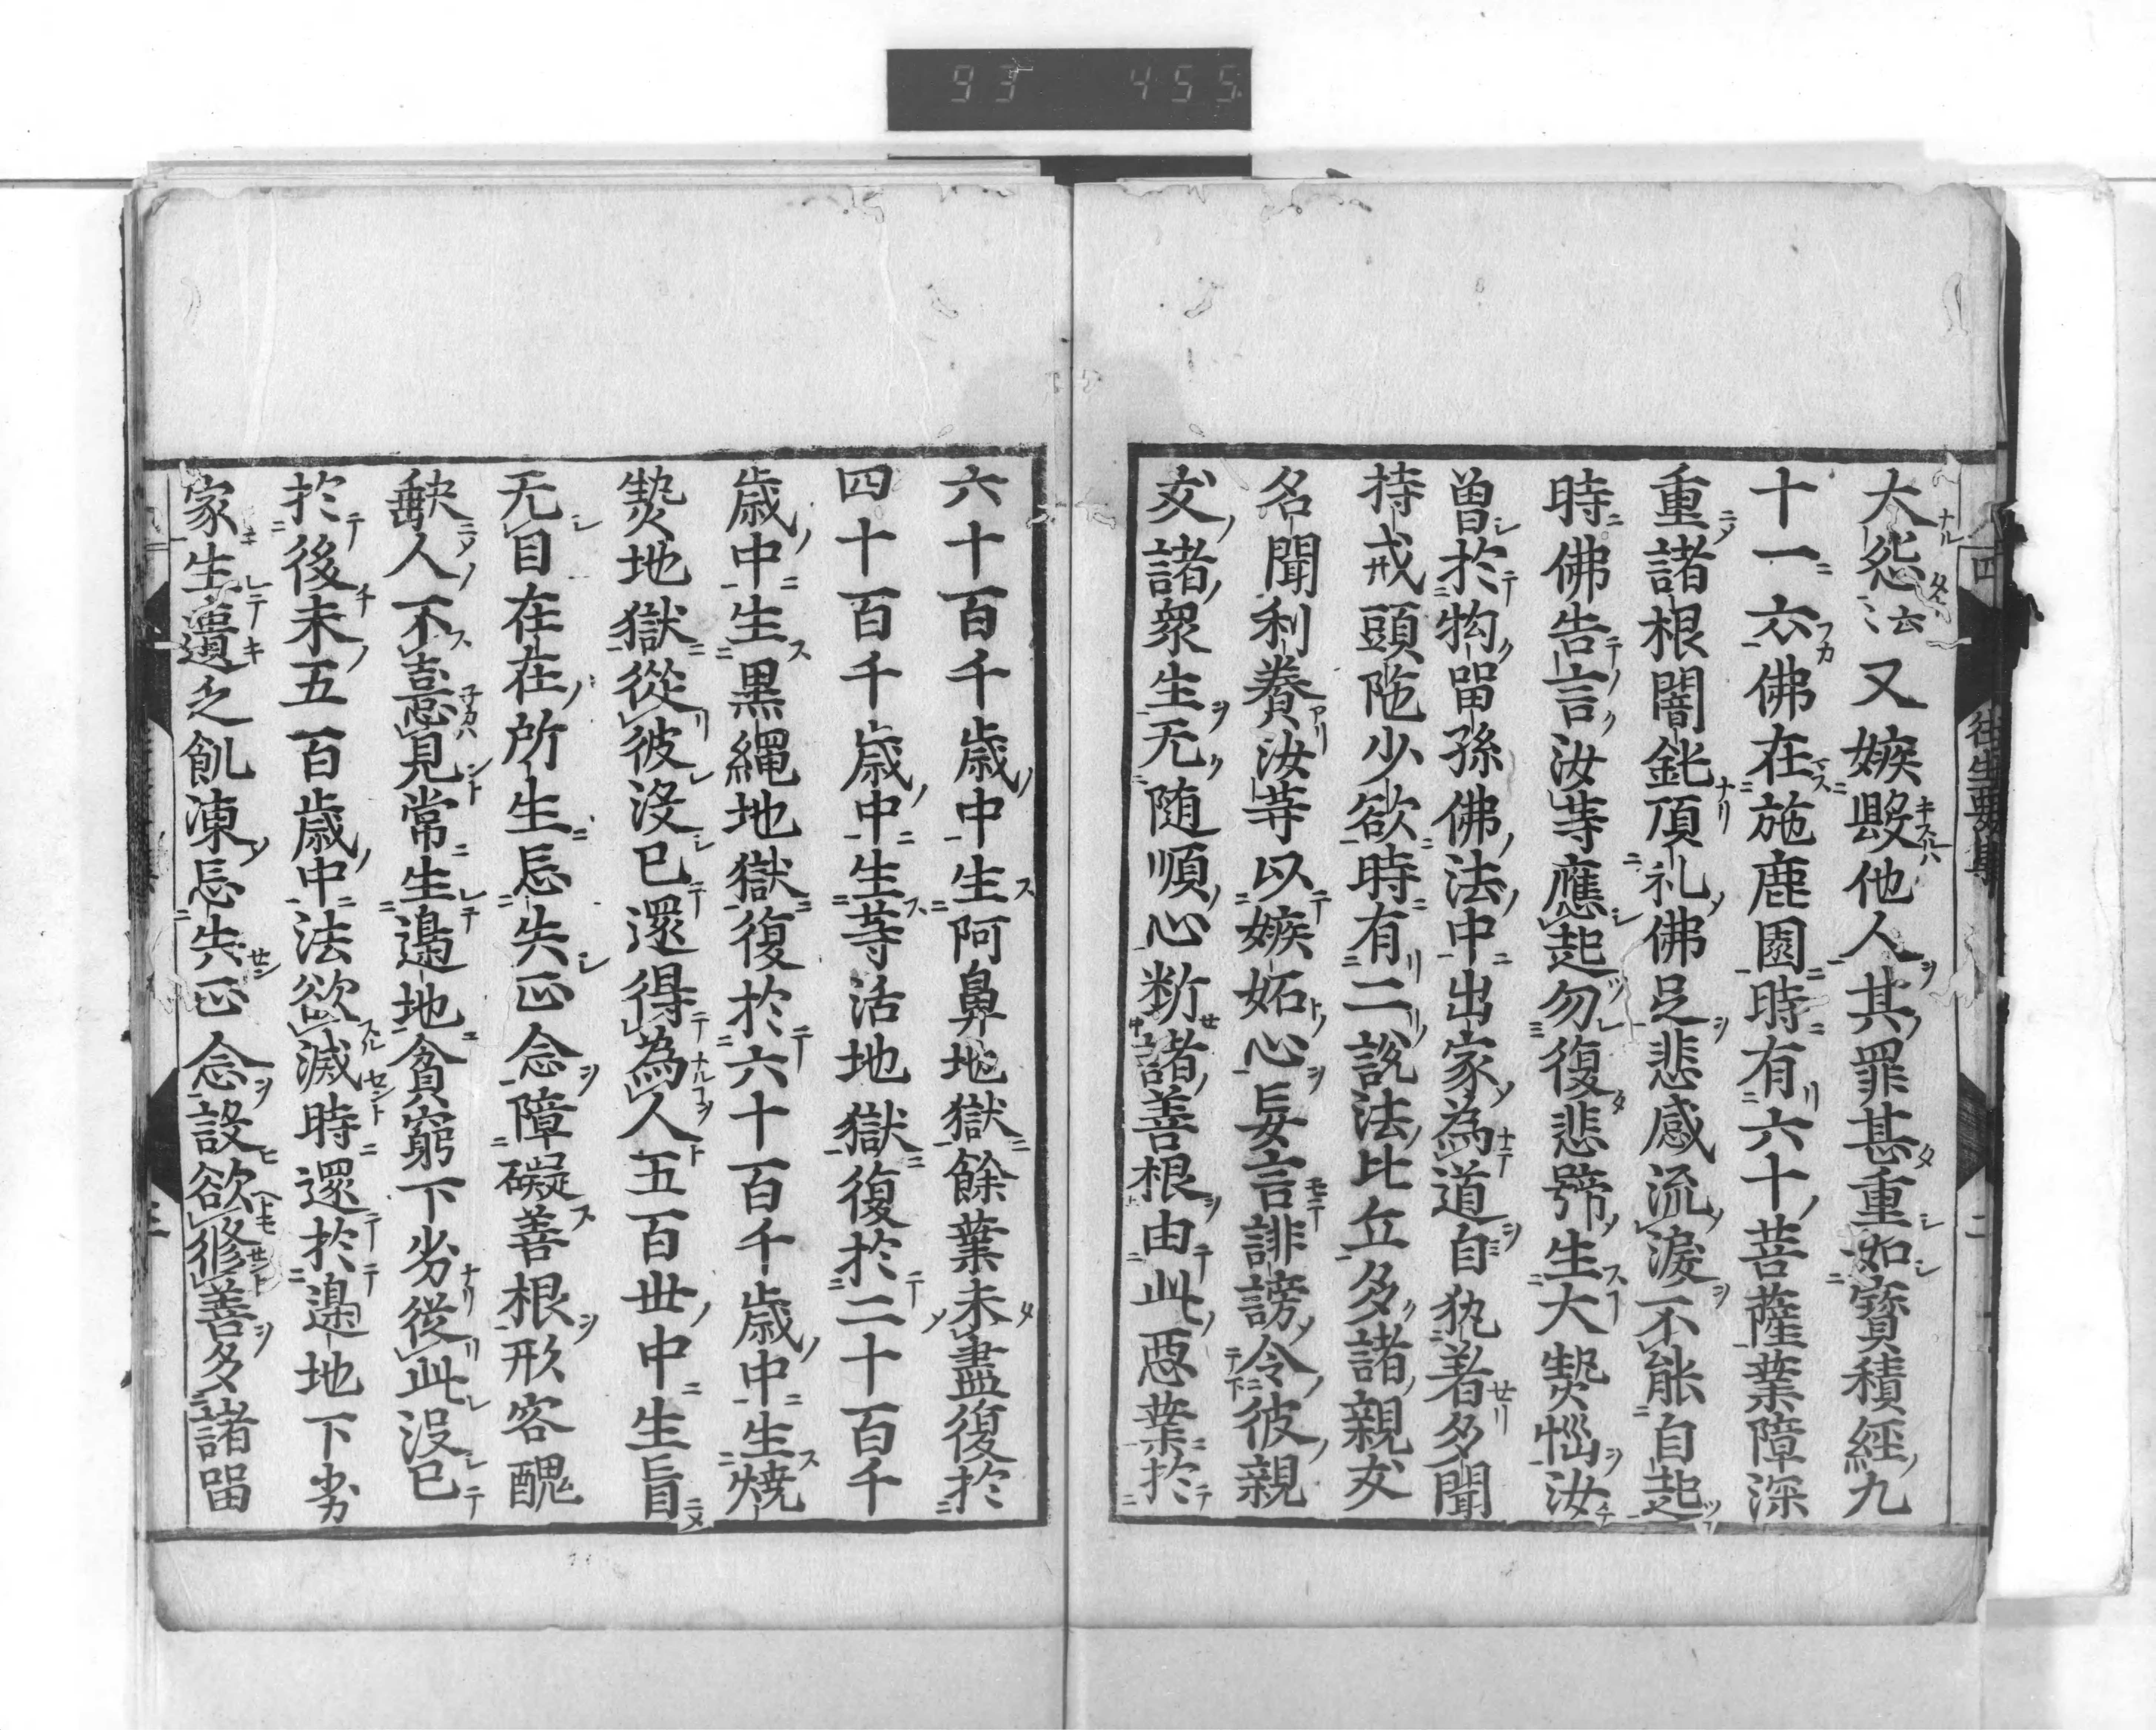 93 455
往生要集
二
大怨云云又嫉毀他人其罪甚重如寳積經九
十一云佛在施鹿園時有六十菩薩業障深
重諸根闇鈍頂礼佛足悲感流淚不能自起
時佛告言汝等應起勿復悲號生大熱惱汝
曽於拘留孫佛法中出家為道自執著多聞
持戒頭陁少欲時有二說法比丘多諸親友
名聞利養汝等以嫉妬心妄言誹謗令彼親
友諸衆生无随順心断諸善根由此悪業於
六十百千歳中生阿鼻地獄餘業未盡復於
四十百千歳中生等活地獄復於二十百千
歳中生黒縄地獄復於六十百千歳中生焼
熱地獄從彼沒已還得為人五百世中生盲
无目在在所生忘失正念障礙善根形容醜
缺人不憙見常生邉地貧窮下劣從此沒已
於後末五百歳中法欲滅時還於邉地下劣
家生遺乏飢凍忘失正念設欲修善多諸留
三